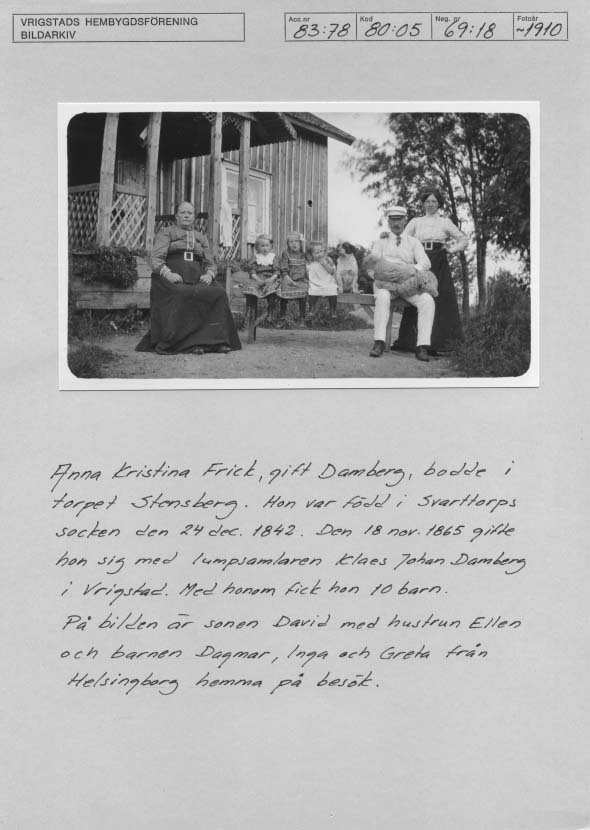 VRIGSTADS HEMBYGDSFÖRENING
BILDARKIV
Acc.nr 83:78 Kod 80:05 Neg. nr 69:18 Fotoår ~1910
Anna Kristina Frick, gift Damberg, bodde i
torpet Stensberg. Hon var född i Svarttorps
socken den 24 dec. 1842. Den 18 nov. 1865 gifte
hon sig med lumpsamlaren Klaes Johan Damberg
i Vrigstad. Med honom fick hon 10 barn.
På bilden är sonen David med hustrun Ellen
och barnen Dagmar, Inga och Greta från
Helsingborg hemma på besök.